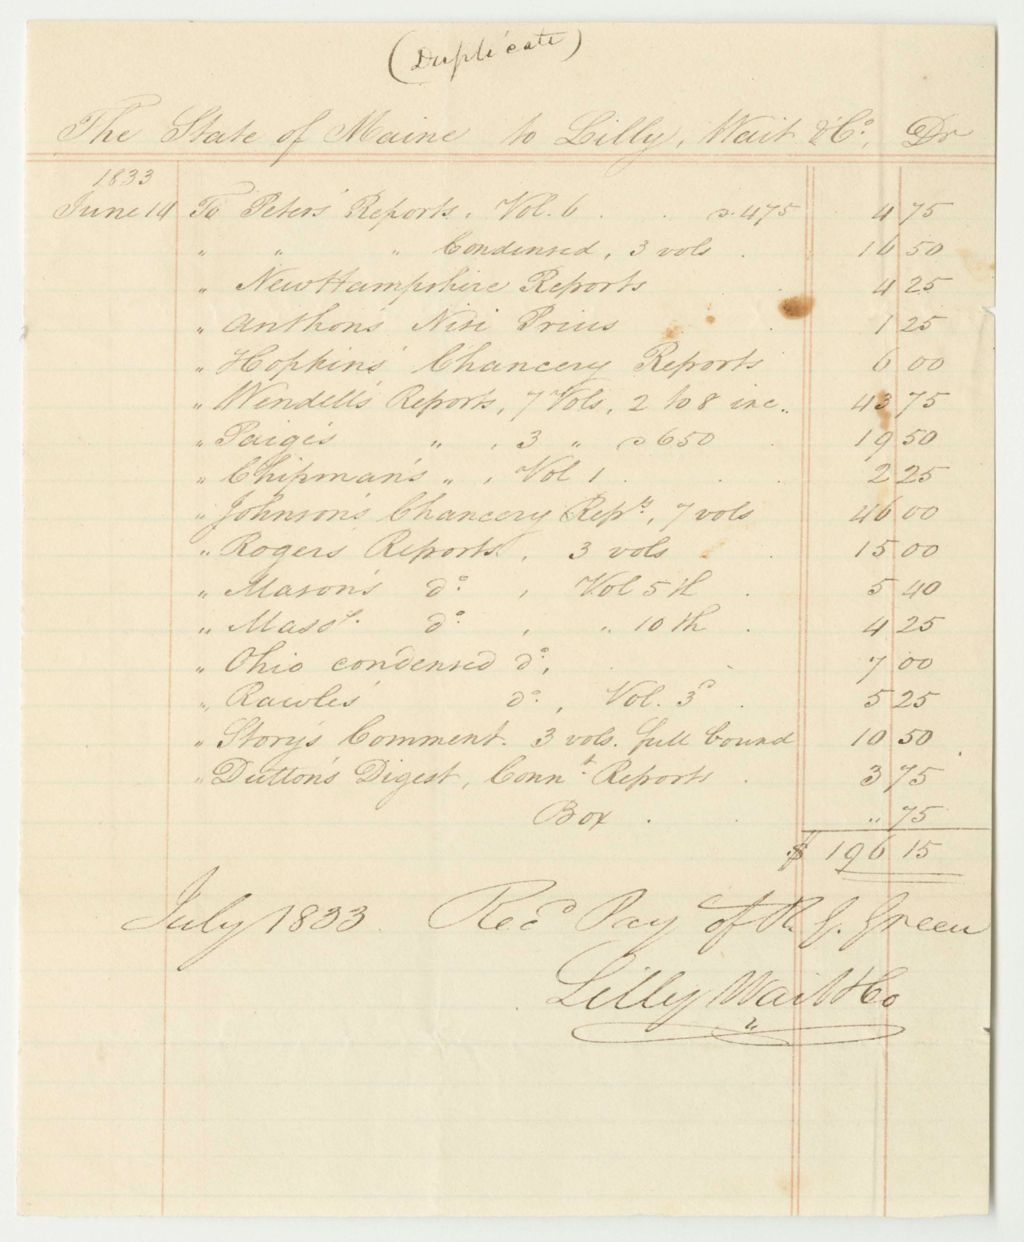 (Duplicate)
The State of Maine to Lilly, Wait & Co, Dr
1833
June 14 To Peters' Reports, Vol. 6 . . @ 475 4 75
" " " Condensed, 3 vols . 16 50
" New Hampshire Reports . 4 25
" Anthon's Nisi Prius . 1 25
" Hopkins' Chancery Reports 6 00
" Wendell's Reports, 7 Vols, 2 to 8 inc. 43 75
" Paige's " , 3 " @ 650 19 50
" Chipman's " , Vol 1 . . . 2 25
" Johnson's Chancery Reps, 7 vols 46 00
" Rogers' Reports, 3 vols . 15 00
" Mason's do , Vol 5th . 5 40
" Masss. do , " 10th . 4 25
" Ohio condensed do, . . 7 00
" Rawle's do , Vol. 3d . 5 25
" Story's Comment. 3 vols. full bound 10 50
" Dutton's Digest, Connt. Reports . 3 75
Box . . " 75
$ 196 15
July 1833. Recd Pay of R. G. Green
Lilly Wait & Co